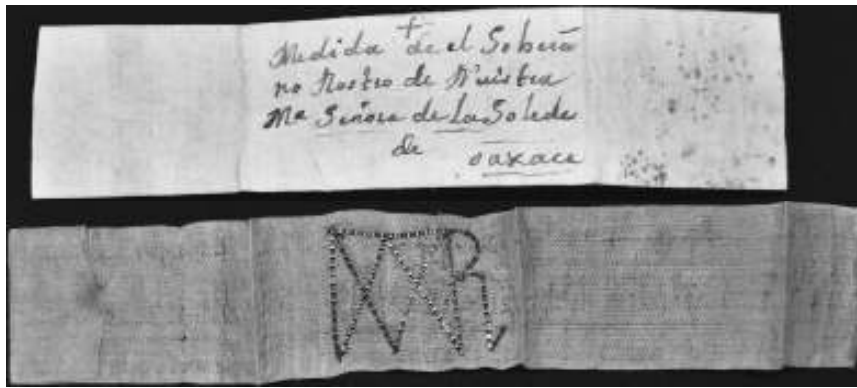 +
Medida de el Sobera
no Rostro de Nuestra
Mª Señora de La Soleda
de oaxaca